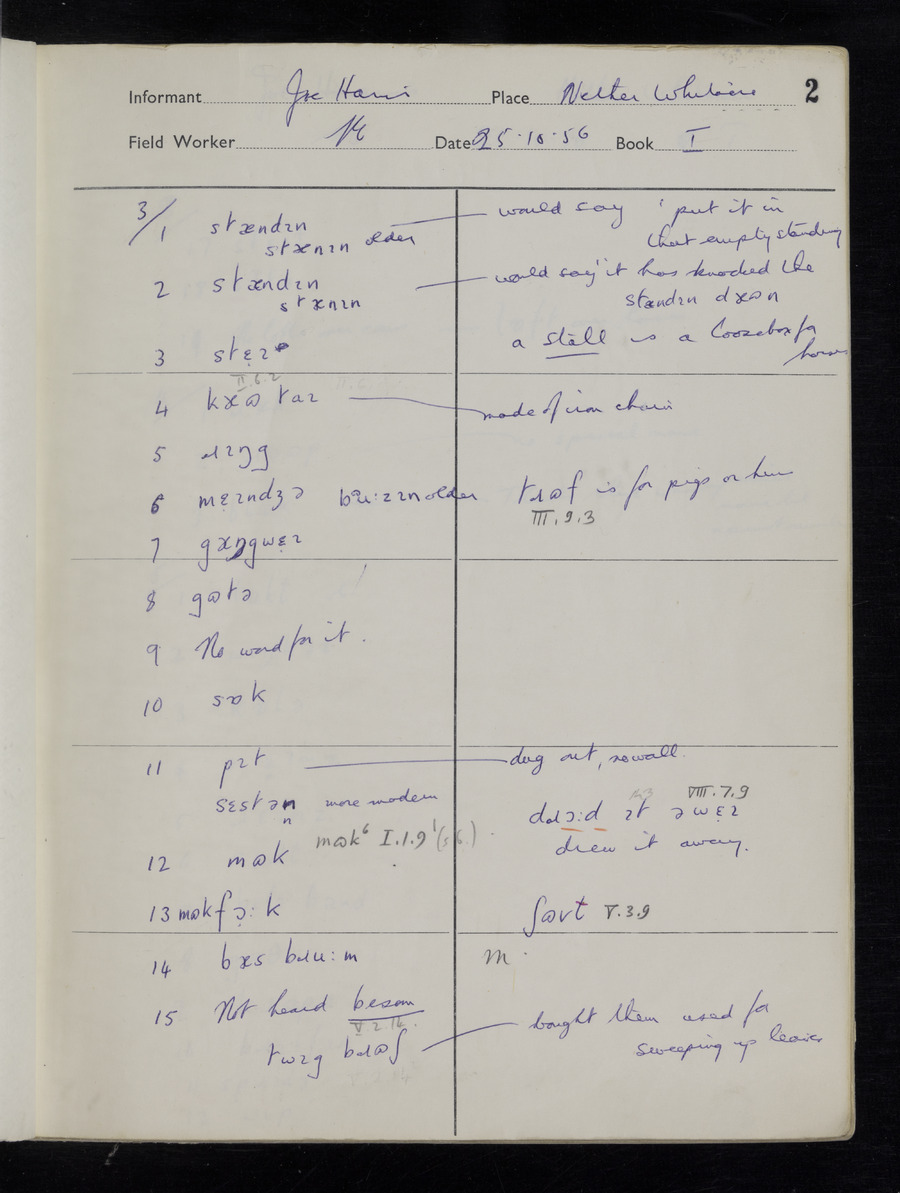 Informant Joe Harris Place Nether Whitacre 2
Field Worker Date 25·10·56 Book I
3/1 stændɪn would say 'put it in
stænɪn older that empty standing
2 stændɪn would say "it has knocked the
stænɪn stændɪn dæʊn
a stall is a loosebox for
3 stɛ̣ɪ horses
II.6.2
4 kæʊ taɪ made of iron chain
5 ɹɪŋg
6 mɛ̣ɪndʒə bu:zɪn older tɹʊf is for pigs or hens
III.9.3
7 gæŋgwɛ̣ɪ
8 gʊtə
9 No word for it.
10 sɒk
11 pɪt dug out, no wall.
sɛstən more modern VIII.7.9
n dɹɔ:d ɪt əwɛ̣ɪ
mʊk⁶ I.1.9 drew it away.
12 mʊk
13 mʊkfɔ̣:k ʃʊvt V.3.9
14 bæs bɹu:m m.
15 Not heard besom bought them used for
V.2.14. sweeping up leaves
twɪg bɹʊʃ
V.2.14